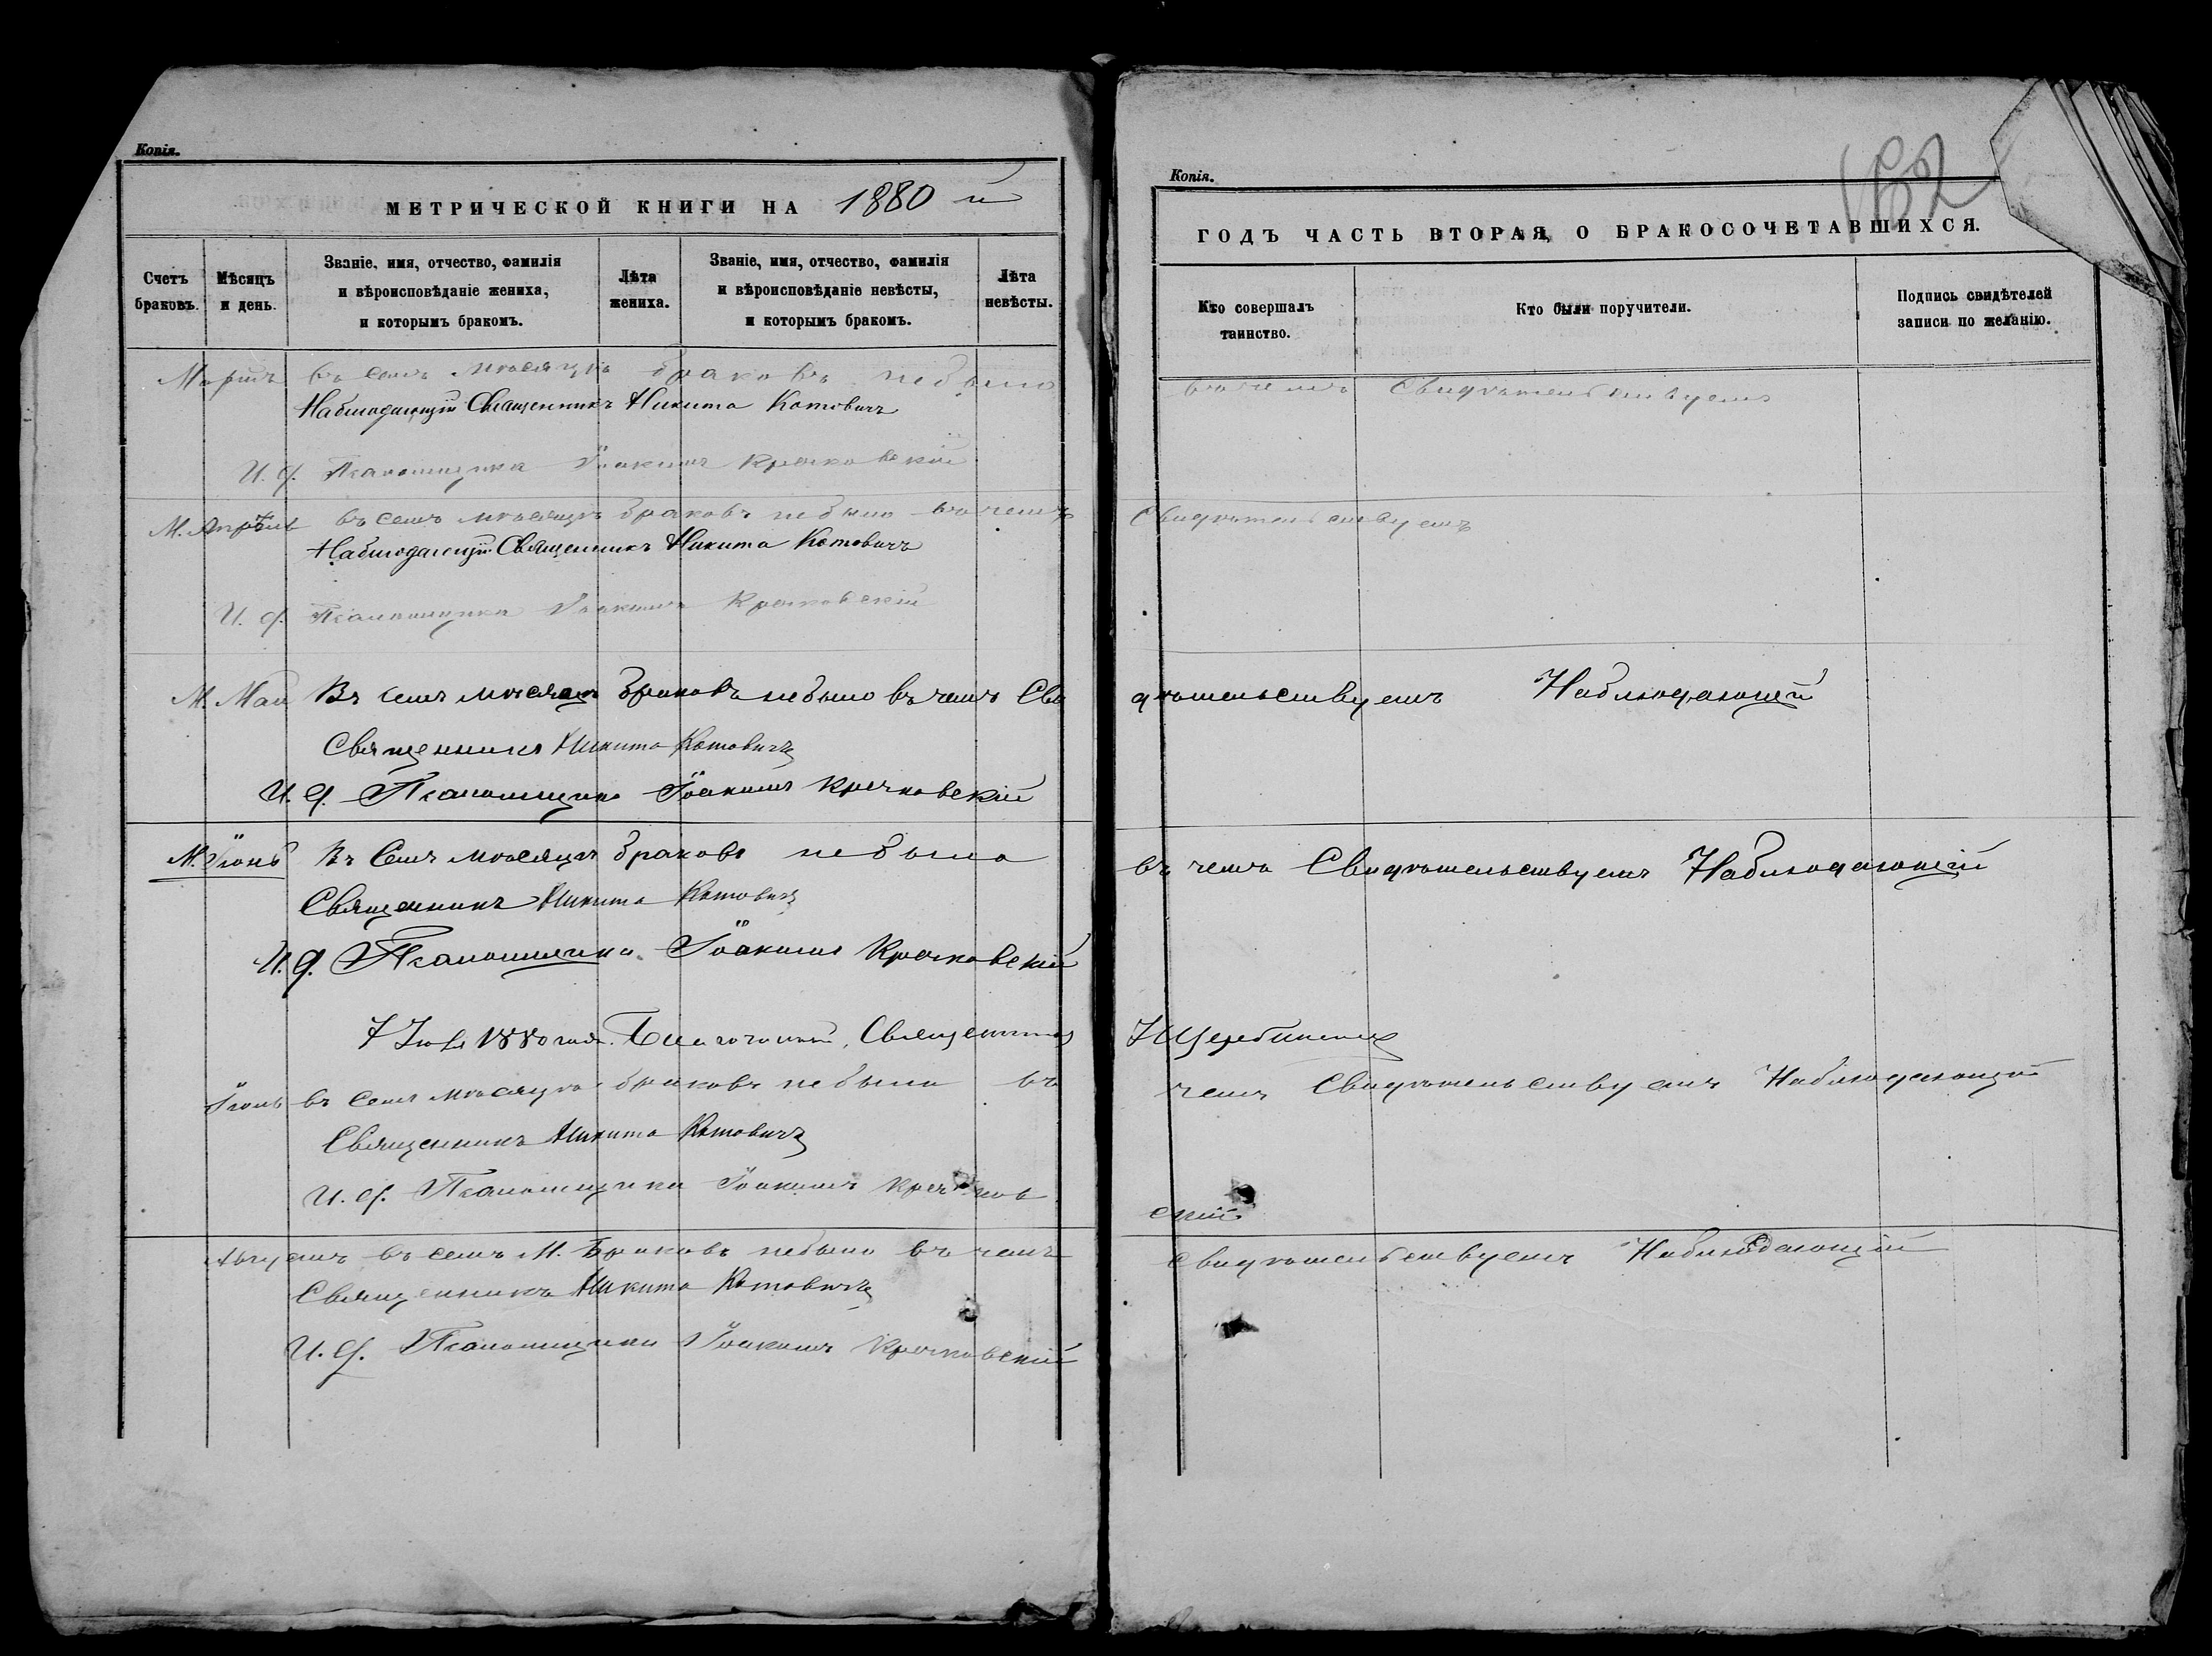 Копія.
МЕТРИЧЕСКОЙ КНИГИ НА 1880 й
Счетъ браковъ.
Мѣсяцъ и день.
Званіе, имя, отчество, фамилія и вѣроисповѣданіе жениха, и которымъ бракомъ.
Лѣта жениха.
Званіе, имя, отчество, фамилія и вѣроисповѣданіе невѣсты, и которымъ бракомъ.
Лѣта невѣсты.
Мартъ въ семъ мѣсяцѣ браковъ небыло
Наблюдающій Священникъ Никита Котовичъ
И. д. Псаломщика Іоакимъ Крочковскій
М. Апрѣль въ семъ мѣсяцѣ браковъ небыло въ чемъ
Наблюдающій Священникъ Никита Котовичъ
И. д. Псаломщика Іоакимъ Крочковскій
М. Май Въ семъ мѣсяцѣ браковъ небыло въ чемъ Сви
Священникъ Никита Котовичъ
И. д. Псаломщика Іоакимъ Крочковскій
М. Іюнь Въ Семъ мѣсяцѣ браковъ небыло
Священникъ Никита Котовичъ
И. д. Псаломщика Іоакимъ Крочковскій
7 1880 года. Благочинный, Священникъ
Іюль въ Семъ мѣсяцѣ браковъ небыло въ
Священникъ Никита Котовичъ
И. д. Псаломщика Іоакимъ Крочков
Августъ въ семъ М. Браковъ небыло въ чемъ
Священникъ Никита Котовичъ
И. д. Псаломщика Іоакимъ Крочковскій
Копія.
ГОДЪ ЧАСТЬ ВТОРАЯ, О БРАКОСОЧЕТАВШИХСЯ.
Кто совершалъ таинство.
Кто были поручители.
Подпись свидѣтелей записи по желанію.
въ чемъ Свидѣтельствуемъ
Свидѣтельствуемъ
дѣтельствуемъ Наблюдающій
въ чемъ Свидѣтельствуемъ Наблюдающій
чемъ Свидѣтельствуемъ Наблюдающій
скій
свидѣтельствуемъ Наблюдающій